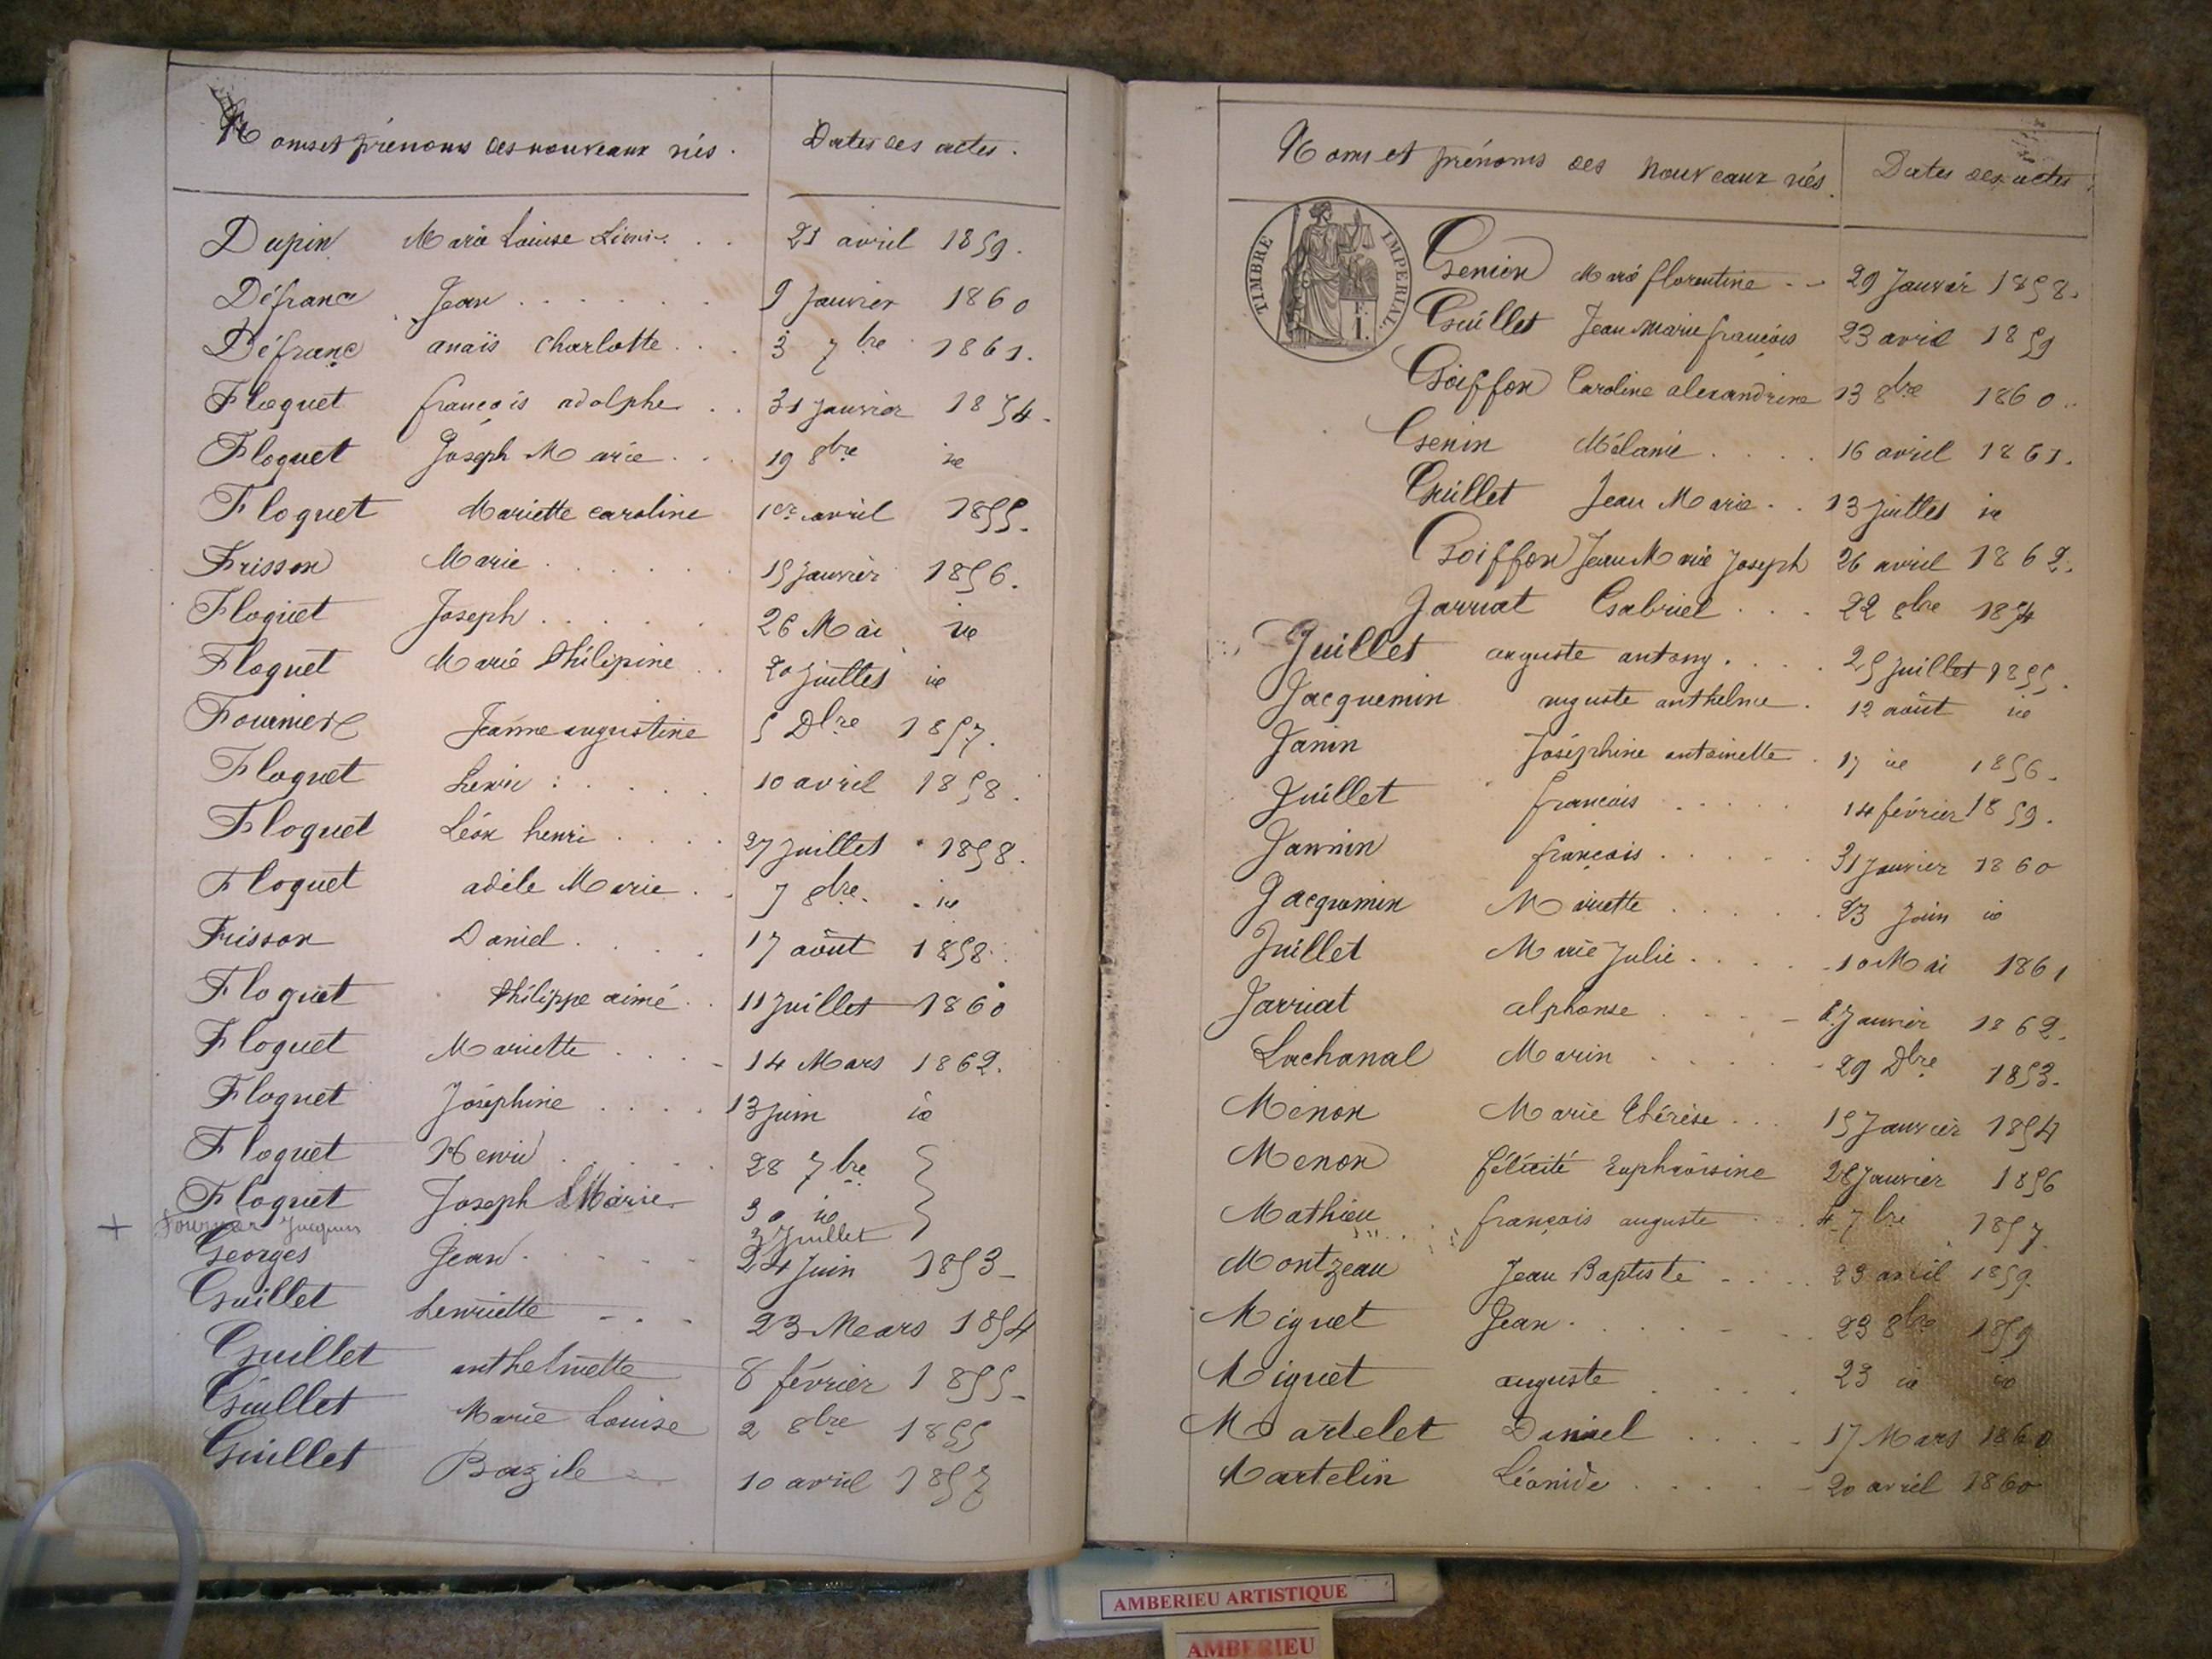 Noms et prénoms des nouveaux nés. Dates des actes.
Dupin Marie Louise 21 avril 1859.
Défranc Jean 9 Janvier 1860
Défranc anaïs Charlotte 3 7bre 1861.
Floquet françois adolphe 31 Janvier 1854.
Floquet Joséph Marie 19 8bre id
Floquet Mariette caroline 1er avril 1855.
Frisson Marie 15 Janvier 1856.
Floquet Joseph 26 Mai id
Floquet Marie Philipine 20 Juillet id
Fournier Jeanne augustine 5 Dbre 1857.
Floquet henri 10 avril 1858.
Floquet Léon henri 27 Juillet 1858.
Floquet adèle Marie 7 8bre id
Frisson Daniel 17 août 1858.
Floquet Philippe aimé 11 Juillet 1860
Floquet Mariette 14 Mars 1862.
Floquet Joséphine 13 Juin id
Floquet Henri 28 7bre
Floquet Joseph Marie 30 id
+ Fournier Jacques 3 Juillet
Georges Jean 24 Juin 1853
Guillet henriette 23 Mars 1854
Guillet anthelmette 8 février 1855
Guillet Marie Louise 2 8bre 1855
Guillet Bazile 10 avril 1857
Noms et prénoms des nouveaux nés. Dates des actes.
TIMBRE IMPERIAL.
Genin Marie florentine 29 Janvier 1858.
Guillet Jean Marie françois 23 avril 1859
Goiffon Caroline alexandrine 13 8bre 1860
Genin Mélanie 16 avril 1861.
Guillet Jean Marie 13 Juillet id
Goiffon Jean Marie Joseph 26 avril 1862.
Jarriat Gabriel 22 8bre 1854
Juillet auguste antony 25 Juillet 1855.
Jacquemin auguste anthelme 12 août id
Janin Joséphine antoinette 17 id 1856.
Juillet françois 14 février 1859.
Jannin françois 31 Janvier 1860
Jacquemin Mariette 23 Juin id
Juillet Marie Julie 10 Mai 1861
Jarriat alphonse Janvier 1862.
Lachanal Marin 29 Dbre 1853.
Menon Marie thérèse 15 Janvier 1854
Menon félicité Euphroisine 28 Janvier 1856
Mathieu françois auguste 4 7bre 1857
Montzeau Jean Baptiste 23 avril 1859.
Miguet Jean 23 8bre 1859
Miguet auguste 23 id id
Martelet Daniel 17 Mars 1860
Martelin Léonide 20 avril 1860
AMBERIEU ARTISTIQUE
AMBERIEU